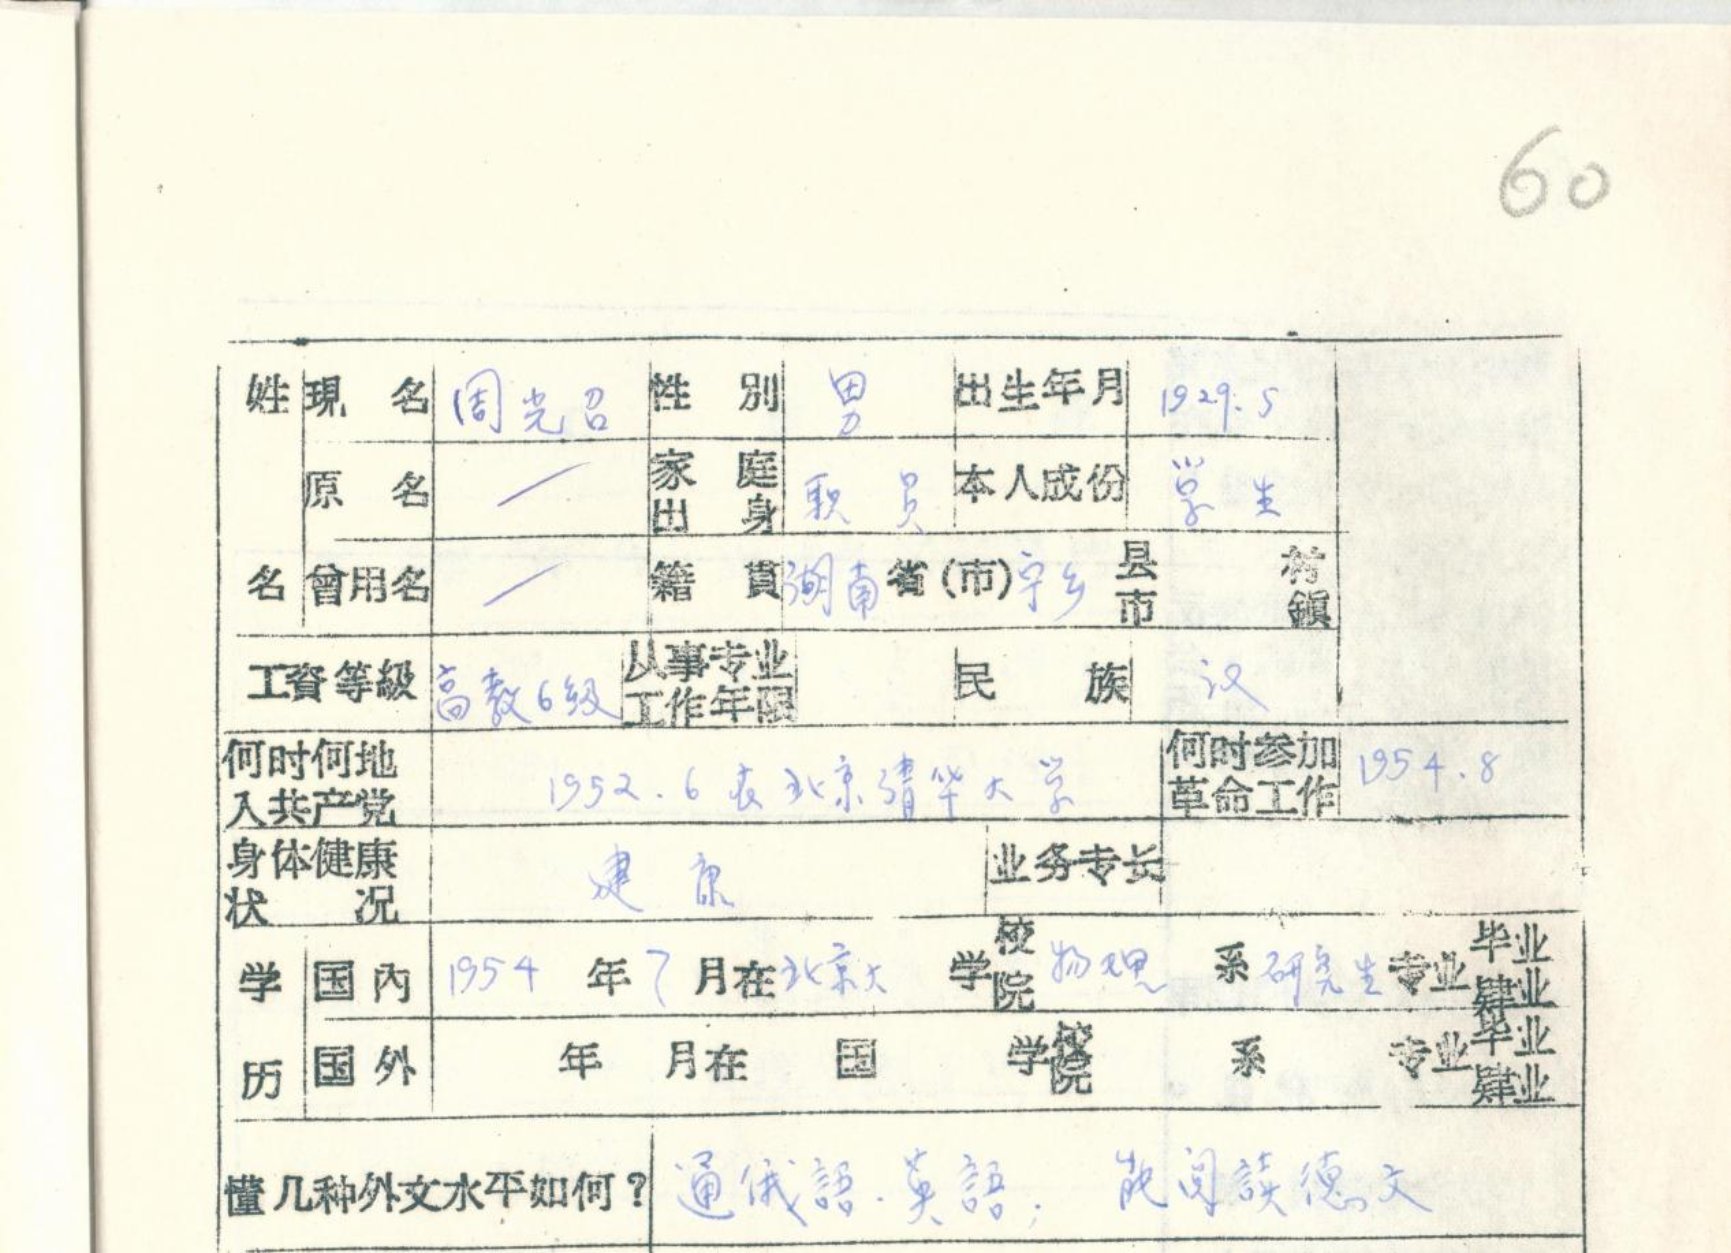 60
姓 現名 周光召 性別 男 出生年月 1929.5
原名 / 家庭出身 职员 本人成份 学生
名 曾用名 / 籍貫 湖南省(市)宁乡县市 村鎮
工資等級 高教6級 从事专业工作年限 民族 汉
何时何地入共产党 1952.6 在北京清华大学 何时参加革命工作 1954.8
身体健康状况 健康 业务专长
学 国內 1954年7月在北京大学校院物理系研究生专业毕业肄业
历 国外 年 月在 国 学校院 系 专业毕业肄业
懂几种外文水平如何? 通俄語.英語; 能閱读德文